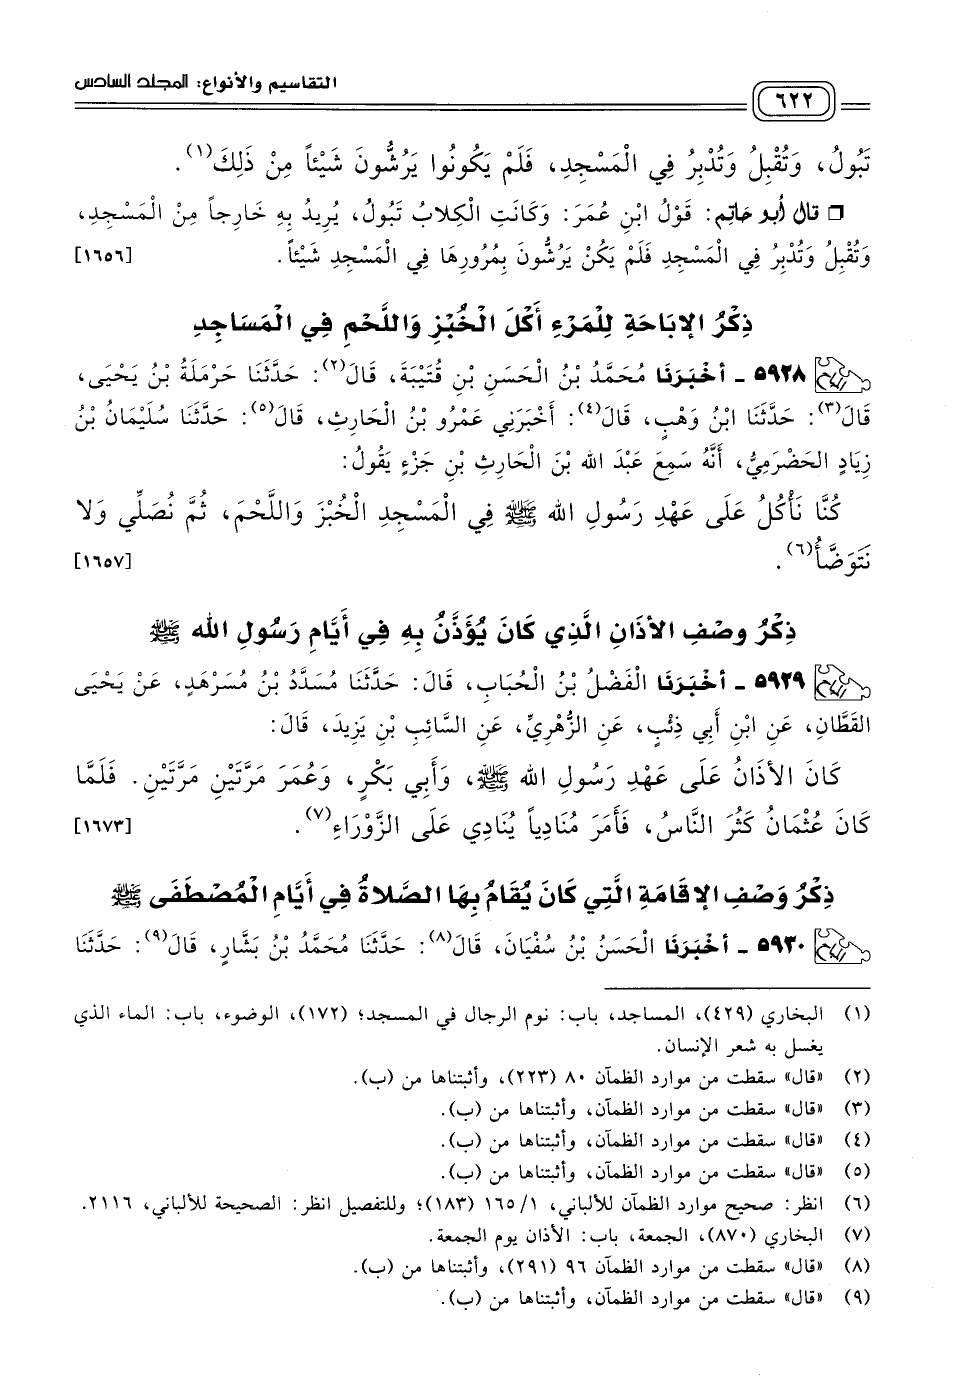 التقاسيم والأنواع: المجلد السادس
٦٢٢
تَبُولُ، وَتُقْبِلُ وَتُدْبِرُ فِي الْمَسْجِدِ، فَلَمْ يَكُونُوا يَرُشُّونَ شَيْئاً مِنْ ذَلِكَ(١).
□ قال أبو حاتم: قَوْلُ ابْنِ عُمَرَ: وَكَانَتِ الْكِلَابُ تَبُولُ، يُرِيدُ بِهِ خَارِجاً مِنْ الْمَسْجِدِ،
وَتُقْبِلُ وَتُدْبِرُ فِي الْمَسْجِدِ فَلَمْ يَكُنْ يَرُشُّونَ بِمُرُورِهَا فِي الْمَسْجِدِ شَيْئاً. [١٦٥٦]
ذِكْرُ الإبَاحَةِ لِلْمَرْءِ أَكْلَ الْخُبْزِ وَاللَّحْمِ فِي الْمَسَاجِدِ
٥٩٢٨ - أخْبَرَنَا مُحَمَّدُ بْنُ الْحَسَنِ بْنِ قُتَيْبَةَ، قَالَ(٢): حَدَّثَنَا حَرْمَلَةُ بْنُ يَحْيَى،
قَالَ(٣): حَدَّثَنَا ابْنُ وَهْبٍ، قَالَ(٤): أَخْبَرَنِي عَمْرُو بْنُ الْحَارِثِ، قَالَ(٥): حَدَّثَنَا سُلَيْمَانُ بْنُ
زِيَادٍ الحَضْرَمِيُّ، أَنَّهُ سَمِعَ عَبْدَ الله بْنَ الْحَارِثِ بْنِ جَزْءٍ يَقُولُ:
كُنَّا نَأْكُلُ عَلَى عَهْدِ رَسُولِ الله ﷺ فِي الْمَسْجِدِ الْخُبْزَ وَاللَّحْمَ، ثُمَّ نُصَلِّي وَلا
نَتَوَضَّأُ(٦). [١٦٥٧]
ذِكْرُ وصْفِ الأذَانِ الَّذِي كَانَ يُؤَذَّنُ بِهِ فِي أَيَّامِ رَسُولِ الله ﷺ
٥٩٢٩ - أخْبَرَنَا الْفَضْلُ بْنُ الْحُبَابِ، قَالَ: حَدَّثَنَا مُسَدَّدُ بْنُ مُسَرْهَدٍ، عَنْ يَحْيَى
القَطَّانِ، عَنِ ابْنِ أَبِي ذِئْبٍ، عَنِ الزُّهْرِيِّ، عَنِ السَّائِبِ بْنِ يَزِيدَ، قَالَ:
كَانَ الأذَانُ عَلَى عَهْدِ رَسُولِ الله ﷺ، وَأَبِي بَكْرٍ، وَعُمَرَ مَرَّتَيْنِ مَرَّتَيْنِ. فَلَمَّا
كَانَ عُثْمَانُ كَثُرَ النَّاسُ، فَأَمَرَ مُنَادِياً يُنَادِي عَلَى الزَّوْرَاءِ(٧). [١٦٧٣]
ذِكْرُ وَصْفِ الإقَامَةِ الَّتِي كَانَ يُقَامُ بِهَا الصَّلاةُ فِي أَيَّامِ الْمُصْطَفَى ﷺ
٥٩٣٠ - أخْبَرَنَا الْحَسَنُ بْنُ سُفْيَانَ، قَالَ(٨): حَدَّثَنَا مُحَمَّدُ بْنُ بَشَّارٍ، قَالَ(٩): حَدَّثَنَا
(١) البخاري (٤٢٩)، المساجد، باب: نوم الرجال في المسجد؛ (١٧٢)، الوضوء، باب: الماء الذي
يغسل به شعر الإنسان.
(٢) «قال» سقطت من موارد الظمآن ٨٠ (٢٢٣)، وأثبتناها من (ب).
(٣) «قال» سقطت من موارد الظمآن، وأثبتناها من (ب).
(٤) «قال» سقطت من موارد الظمآن، وأثبتناها من (ب).
(٥) «قال» سقطت من موارد الظمآن، وأثبتناها من (ب).
(٦) انظر: صحيح موارد الظمآن للألباني، ١/ ١٦٥ (١٨٣)؛ وللتفصيل انظر: الصحيحة للألباني، ٢١١٦.
(٧) البخاري (٨٧٠)، الجمعة، باب: الأذان يوم الجمعة.
(٨) «قال» سقطت من موارد الظمآن ٩٦ (٢٩١)، وأثبتناها من (ب).
(٩) «قال» سقطت من موارد الظمآن، وأثبتناها من (ب).